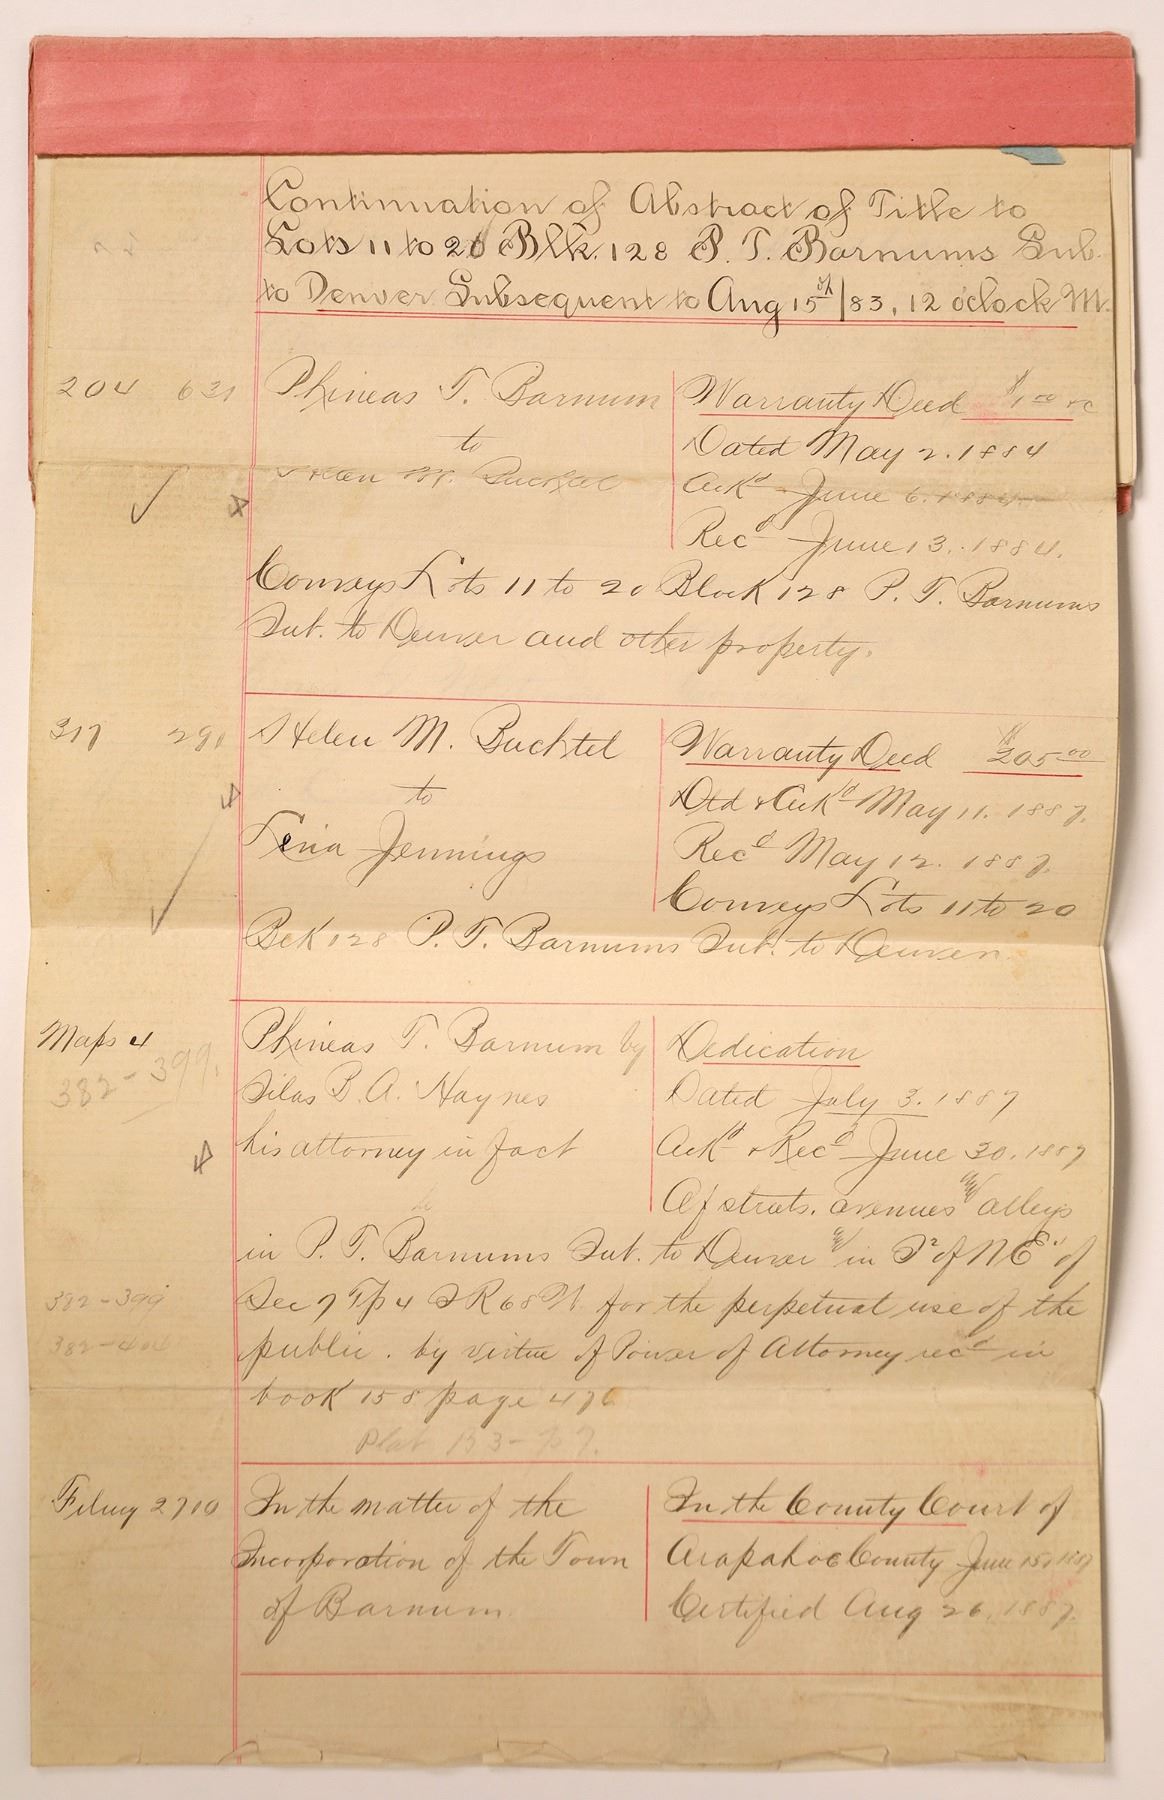 Continuation of Abstract of Title to
Lots 11 to 20 Blk. 128 P. T. Barnums Sub.
to Denver Subsequent to Aug 15th/83, 12 oclock M.
204 631 Phineas T. Barnum Warranty Deed $1.00 &c
to Dated May 2. 1884
Helen M. Buchtel Ackd June 6. 1884
Recd June 13. 1884.
Conveys Lots 11 to 20 Block 128 P. T. Barnums
Sub. to Denver and other property.
317 291 Helen M. Buchtel Warranty Deed $205.00
to Dtd & Ackd May 11. 1887.
Lena Jennings Recd May 12. 1887.
Conveys Lots 11 to 20
Blk 128 P. T. Barnums Sub. to Denver.
Maps 4 Phineas T. Barnum by Dedication
382-399. Silas B. A. Haynes Dated July 3. 1887
his attorney in fact Ackd & Recd June 30. 1887
Of streets. avenues & alleys
in P. T. Barnums Sub. to Denver & in S2 of NE4 of
382-399 Sec 7 Tp 4 S R 68 W. for the perpetual use of the
382-404 public. by virtue of Power of Attorney recd in
book 158 page 476
Plat 153-
Filing 2710 In the matter of the In the County Court of
Incorporation of the Town Arapahoe County June 15, 1887
of Barnum. Certified Aug 26, 1887.